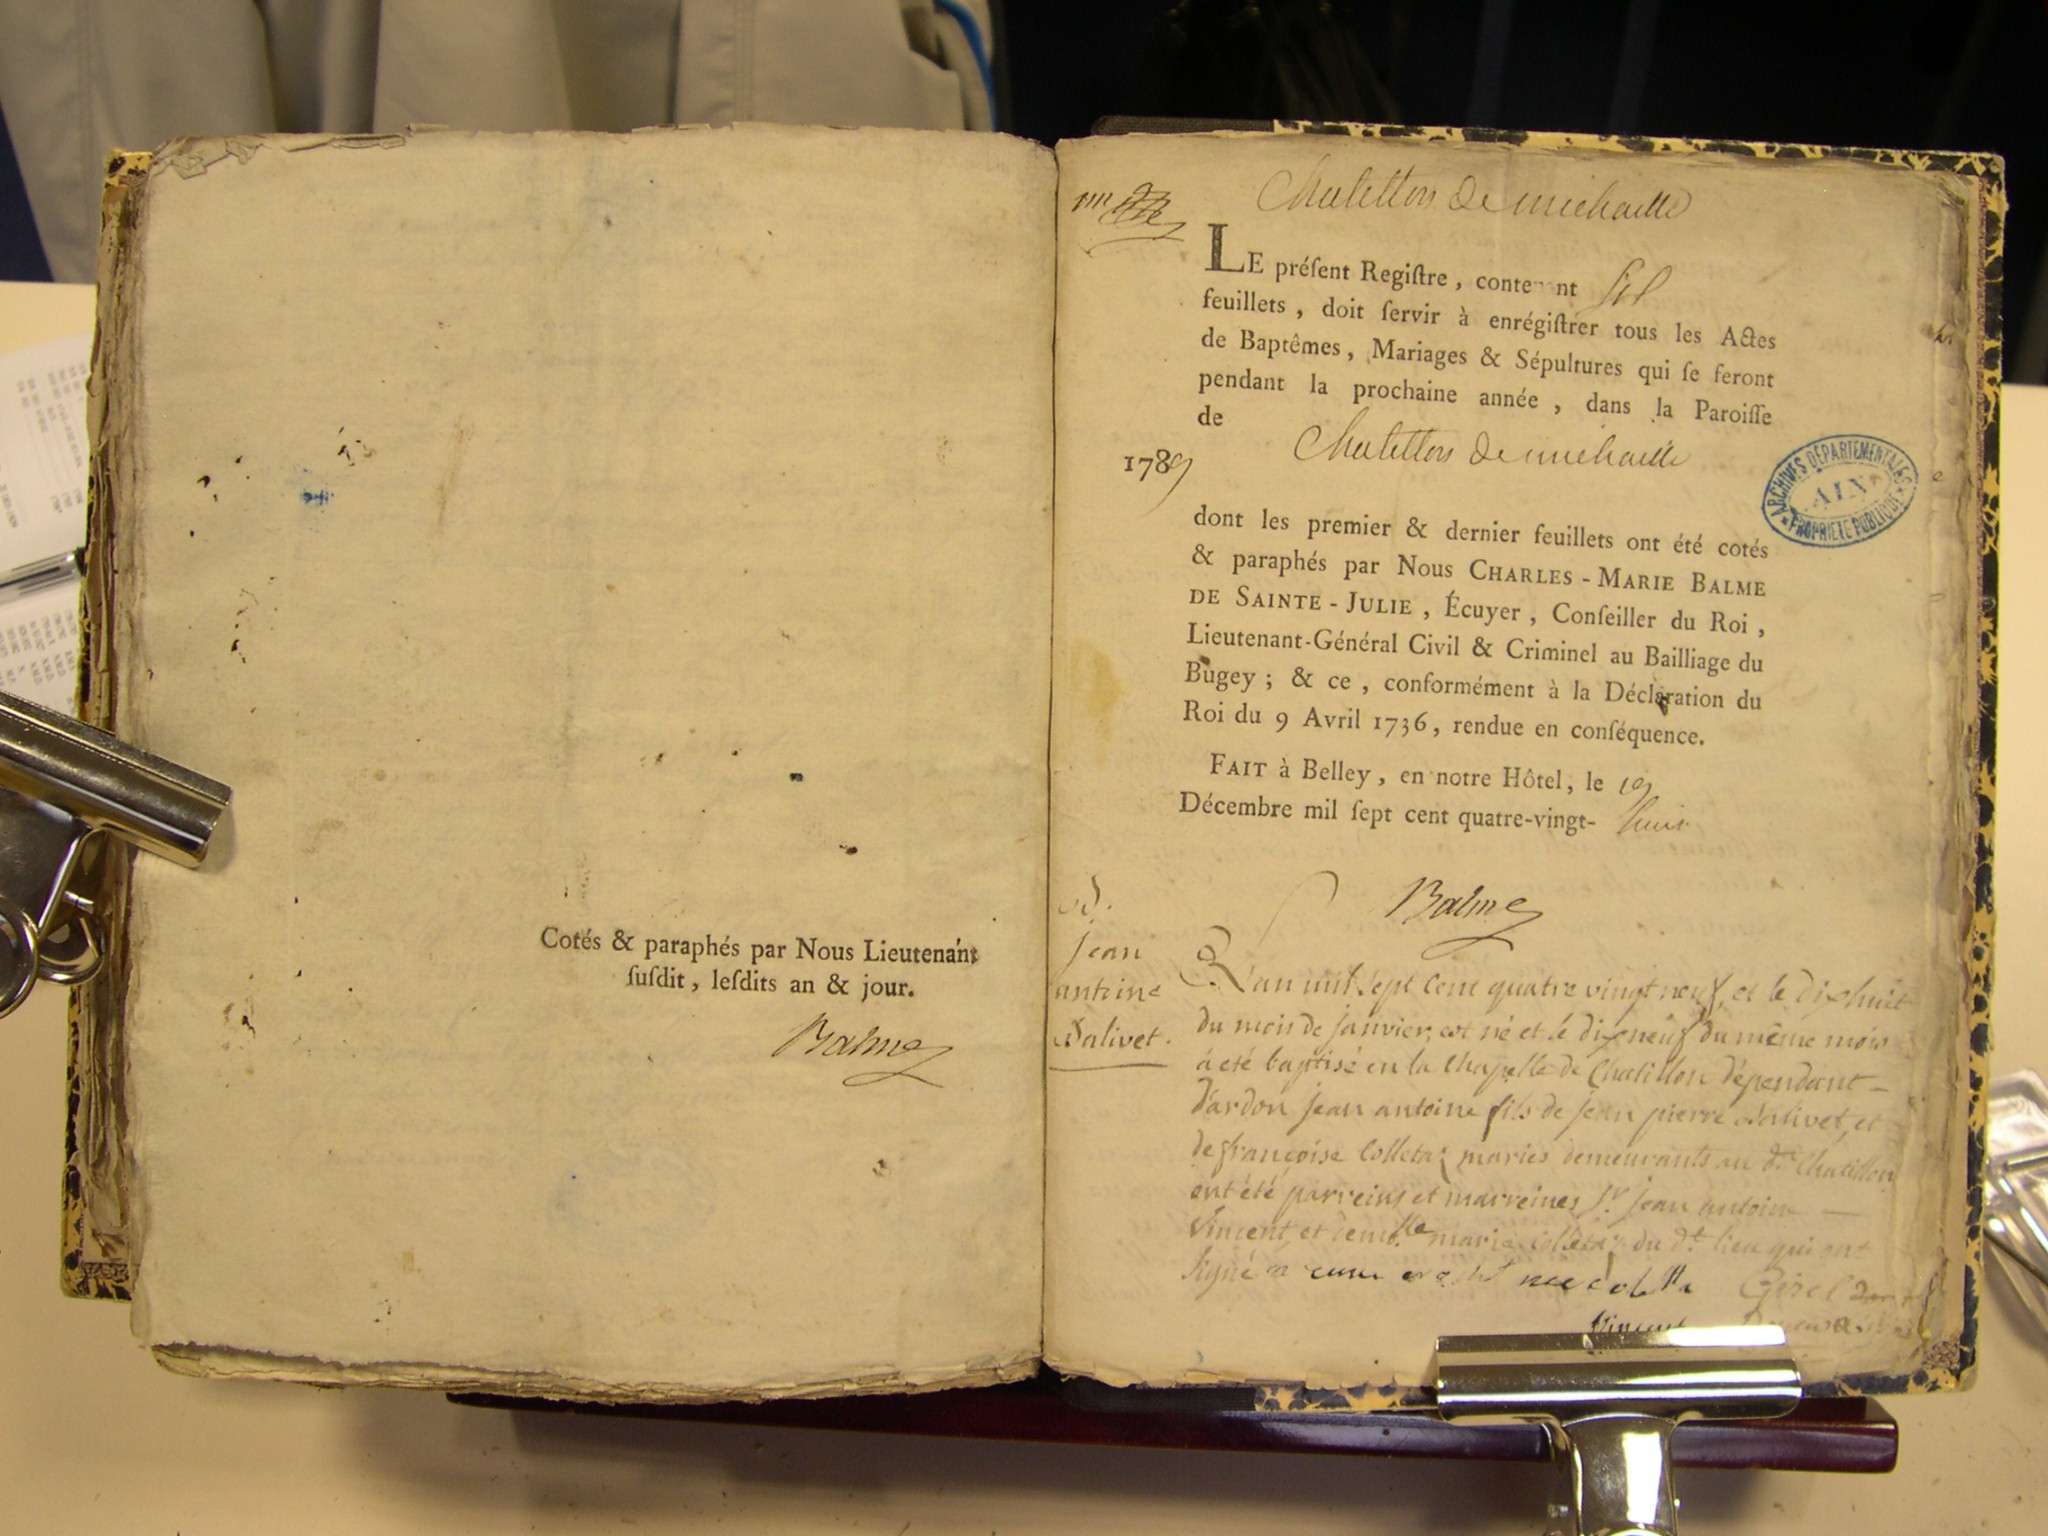 Cotés & paraphés par Nous Lieutenant
ſuſdit, leſdits an & jour.
Balme
Chatillon de michaille
LE préſent Regiſtre, contenant six
feuillets, doit ſervir à enrégiſtrer tous les Actes
de Baptêmes, Mariages & Sépultures qui ſe feront
pendant la prochaine année, dans la Paroiſſe
de Chatillon de michaille
1789
ARCHIVES DÉPARTEMENTALES
AIN
PROPRIÉTÉ PUBLIQUE
dont les premier & dernier feuillets ont été cotés
& paraphés par Nous CHARLES-MARIE BALME
DE SAINTE-JULIE, Écuyer, Conſeiller du Roi,
Lieutenant-Général Civil & Criminel au Bailliage du
Bugey; & ce, conformément à la Déclaration du
Roi du 9 Avril 1736, rendue en conſéquence.
FAIT à Belley, en notre Hôtel, le 19
Décembre mil ſept cent quatre-vingt- huit
Balme
jean
antoine
Dalivet.
L'an mil sept cent quatre vingt neuf, et le dix huit
du mois de janvier, est né et le dix neuf du même mois
a été baptisé en la Chapelle de Chatillon dépendant
d'ardon jean antoine fils de jean pierre dalivet, et
de françoise Colletaz mariés demeurants au dt Chatillon
ont été parreins et marreines sr jean antoine
Vincent, et demlle marie colletaz du dt lieu qui ont
signé
Vincent